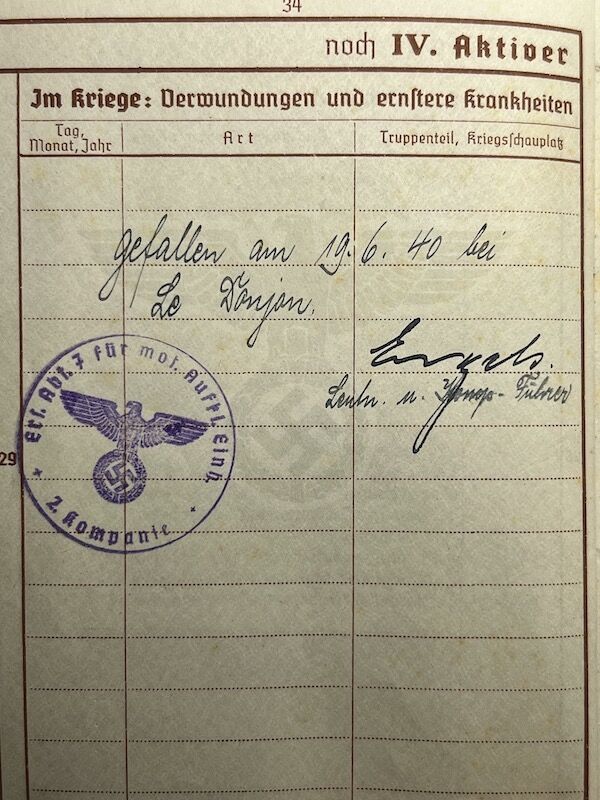 34
noch IV. Aktiver
Im Kriege: Verwundungen und ernstere Krankheiten
Tag,
Monat, Jahr
Art
Truppenteil, Kriegsschauplatz
gefallen am 19.6.40 bei
Le Donjon.
Leutn. u. Komp.-Führer
29
Ers. Abt. 7 für mot. Aufkl. Einh.
2. Kompanie